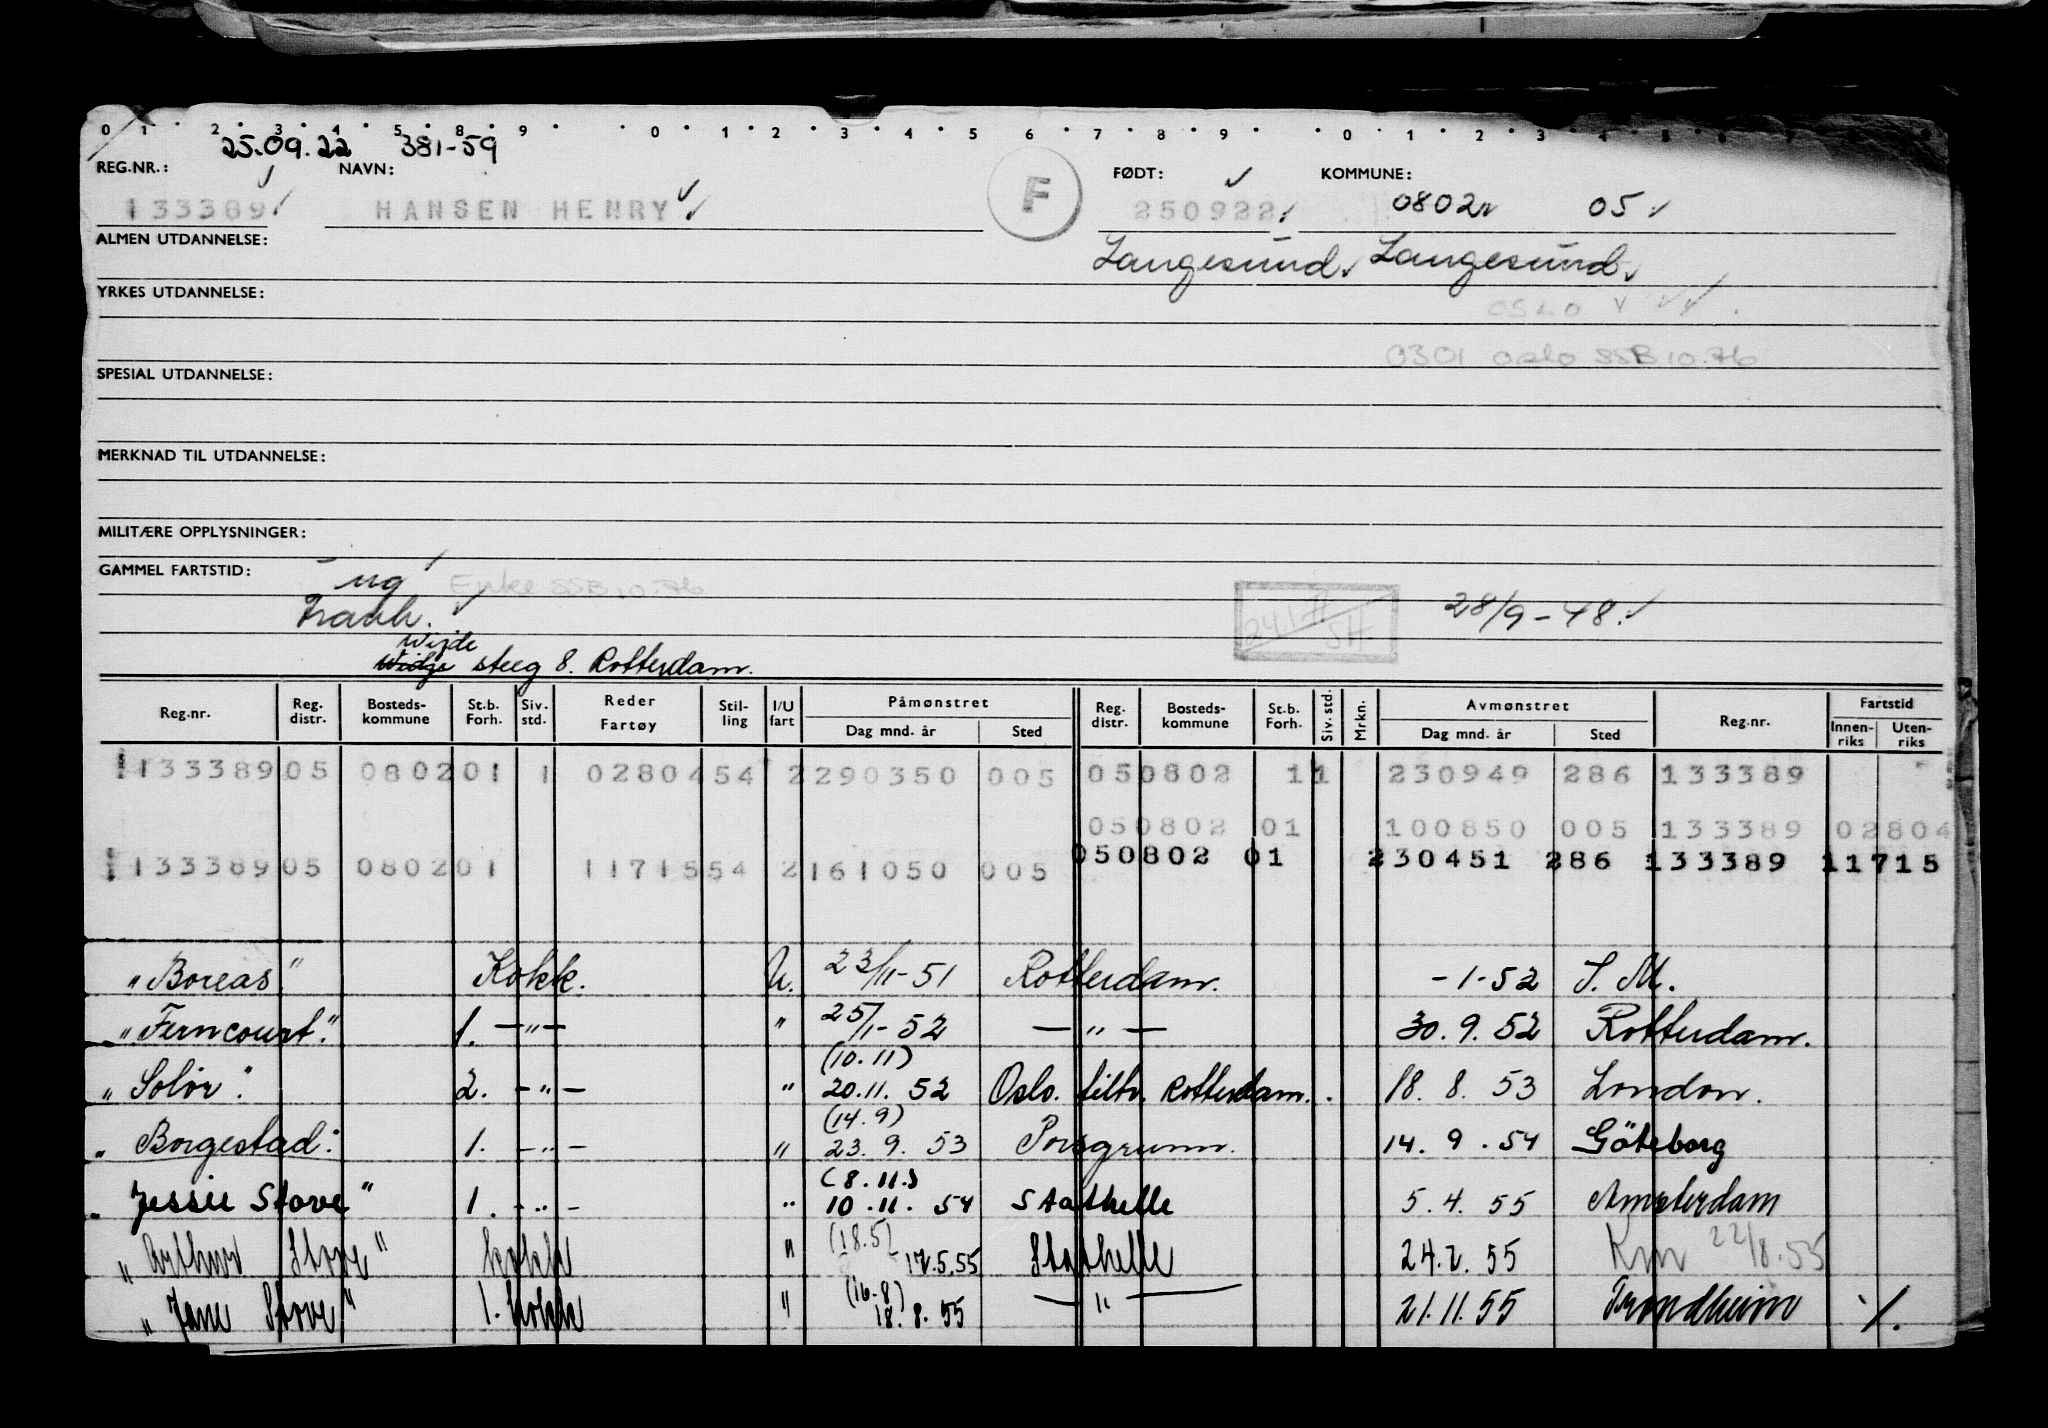 0 1 2 3 4 5 8 9 0 1 2 3 4 5 6 7 8 9 0 1 2 3 4 5 6 7
25.09.22 381-59
REG.NR.: NAVN: F FØDT: KOMMUNE:
133389 HANSEN HENRY 250922 0802 05
ALMEN UTDANNELSE: Langesund Langesund
YRKES UTDANNELSE:
OSLO
0301 Oslo SSB 10.76
SPESIAL UTDANNELSE:
MERKNAD TIL UTDANNELSE:
MILITÆRE OPPLYSNINGER:
GAMMEL FARTSTID:
ug Enke SSB 10.76
28/9-48.
Wijde
steeg 8. Rotterdam.
Reg.nr. Reg. distr. Bosteds-kommune St.b. Forh. Siv. std. Reder Fartøy Stil-ling I/U fart Påmønstret Dag mnd. år Sted Reg. distr. Bosteds-kommune St.b. Forh. Siv. std. Mrkn. Avmønstret Dag mnd. år Sted Reg.nr. Fartstid Innen-riks Uten-riks
133389 05 0802 01 1 02804 54 2 290350 005 05 0802 1 1 230949 286 133389
05 0802 01 100850 005 133389 02804
05 0802 01 230451 286 133389 11715
133389 05 0802 01 11715 54 2 161050 005
"Boreas" Kokk. U. 23/11-51 Rotterdam. -1-52 S. M.
"Ferncourt". 1. -"- " 25/1-52 -"- 30.9.52 Rotterdam.
(10.11)
"Solør". 2. -"- " 20.11.52 Oslo. tiltr. Rotterdam. 18.8.53 London.
(14.9)
"Borgestad" 1. -"- " 23.9.53 Porsgrunn. 14.9.54 Göteborg
(8.11)
"Jessie Stove" 1. -"- " 10.11.54 Stathelle 5.4.55 Amsterdam
(18.5)
"Arthur Stove" kokk " 17.5.55 Stathelle 24.7.55 Km 22/8.55
(16.8)
"Jane Stove" 1. kokk " 18.8.55 -"- 21.11.55 Trondheim ./.